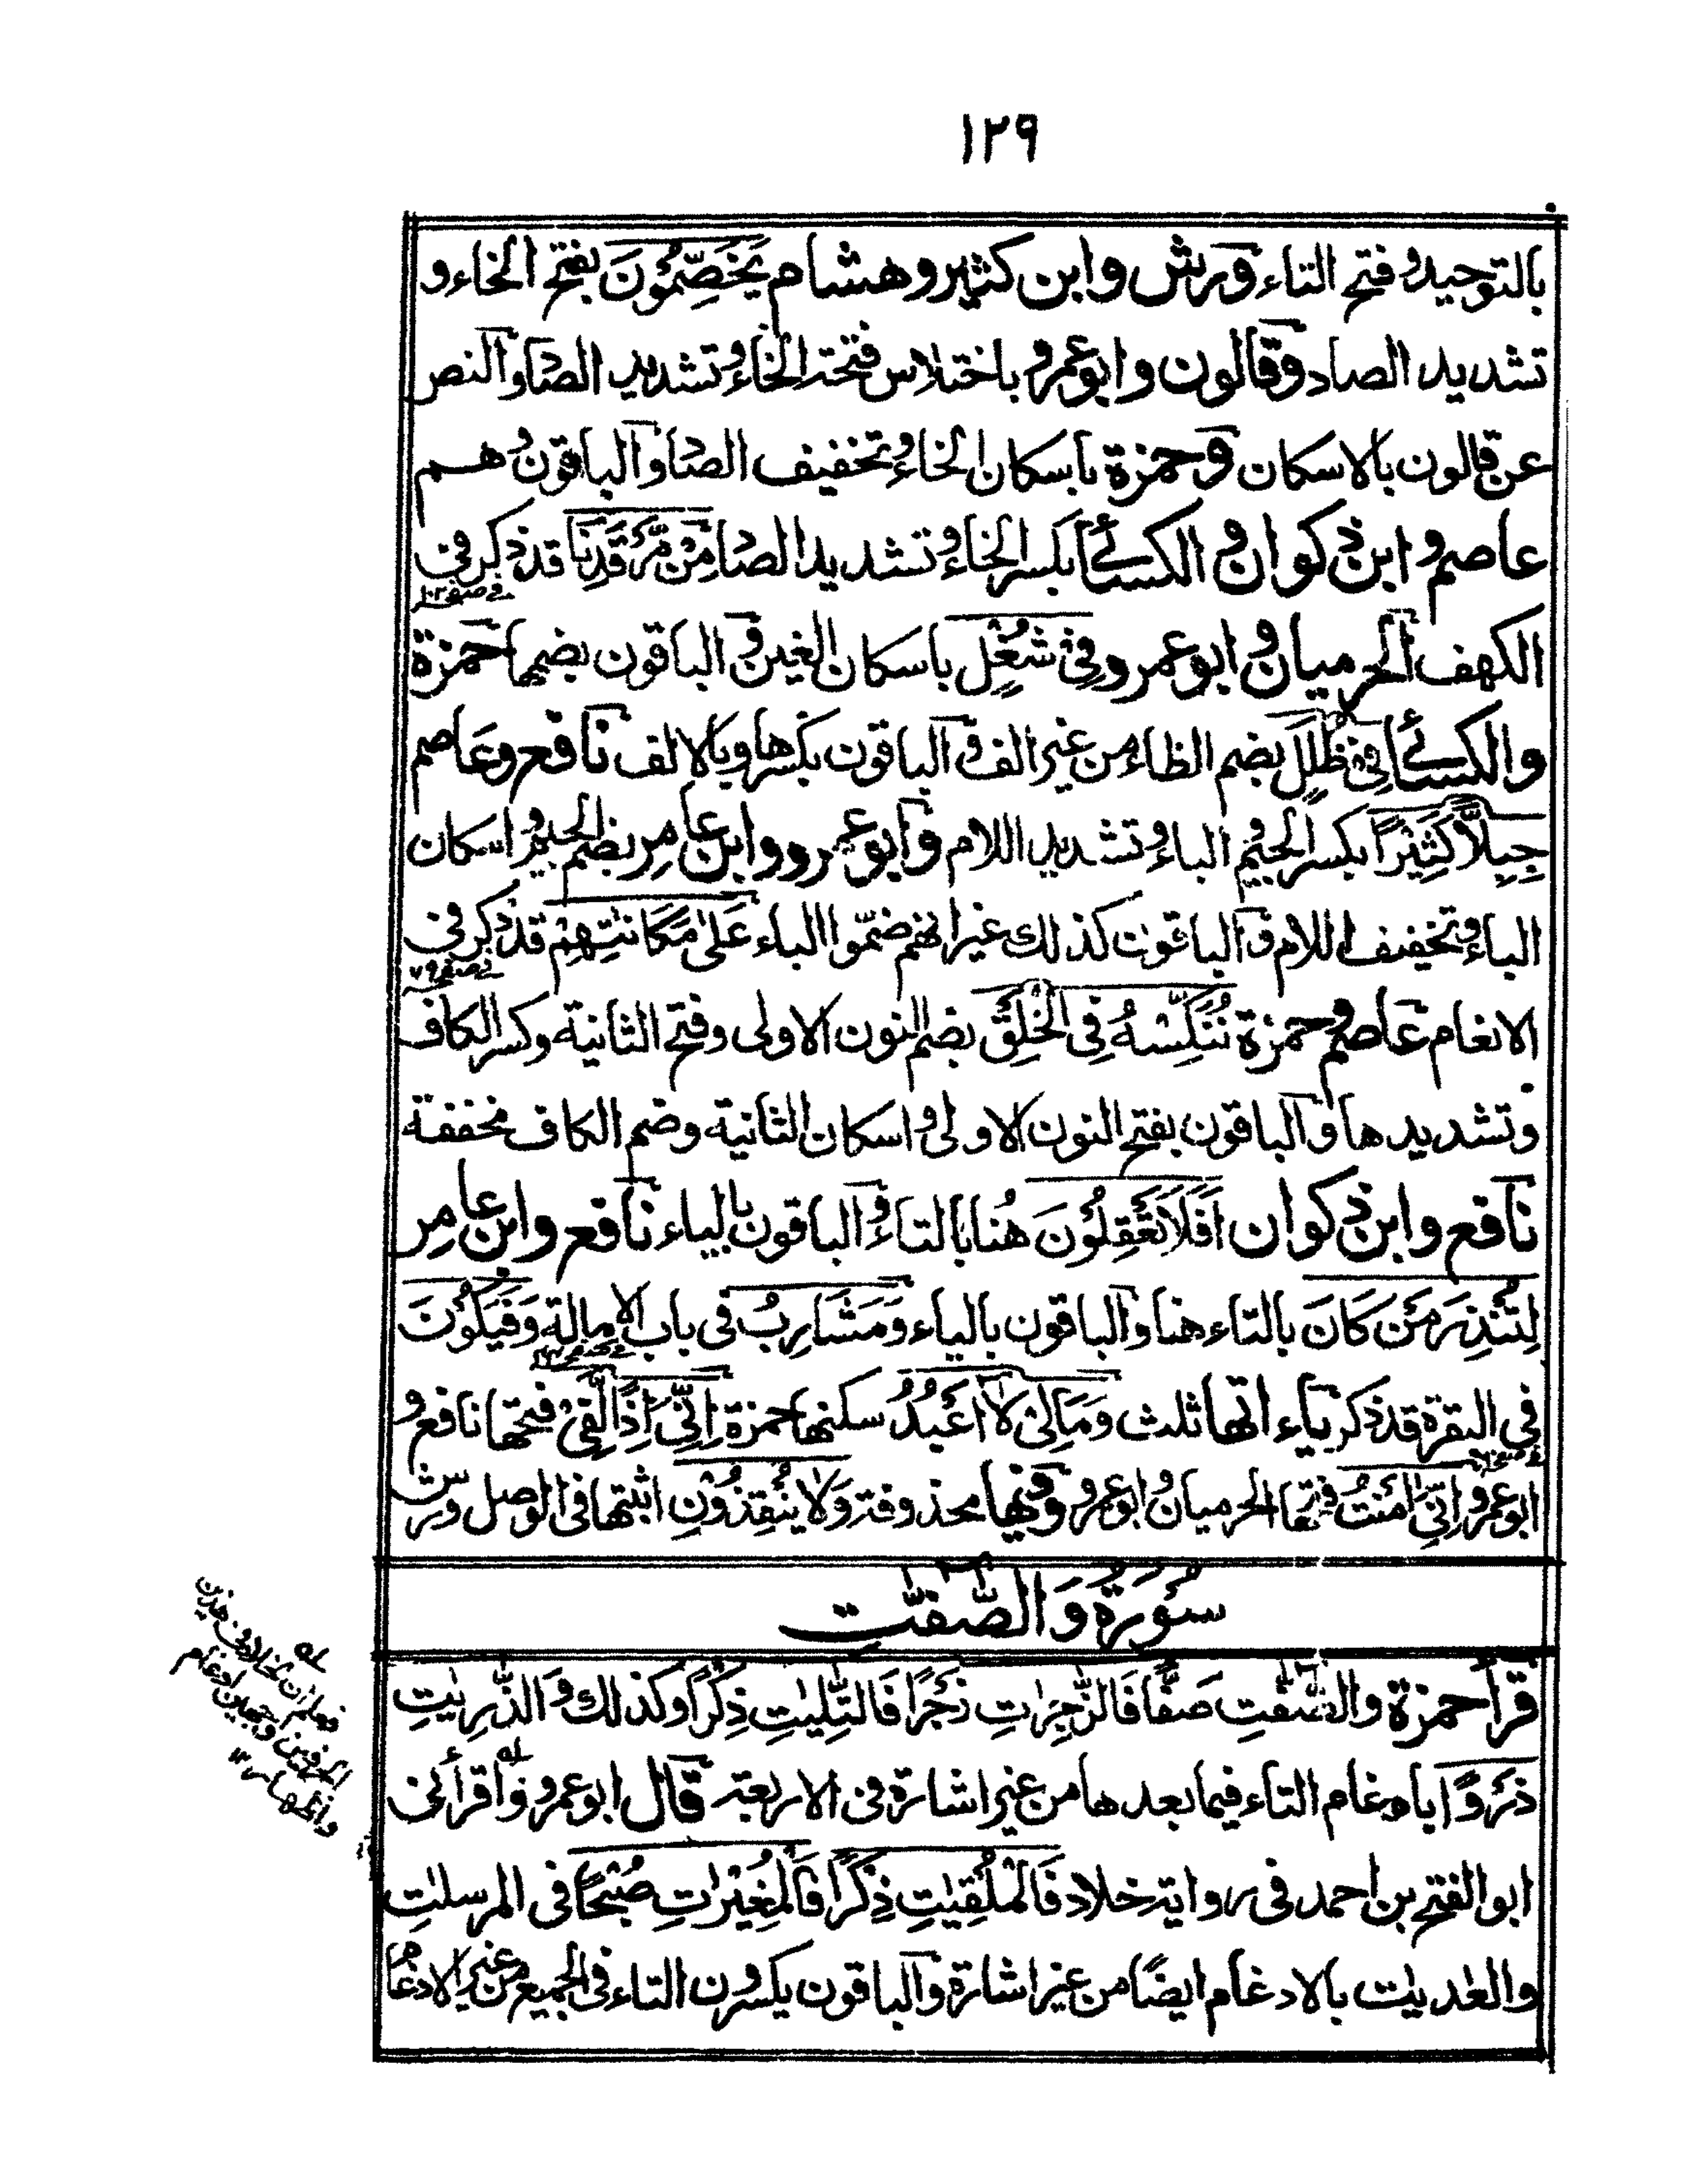 ١٢٩
بالتوحيد و فتح التاء ورش وابن كثير وهشام يَخَصِّمُوْنَ بفتح الخاء و
تشديد الصاد وقالون وابو عمرو باختلاس فتحة الخاء و تشديد الصاد والنص
عن قالون بالاسكان وحمزة باسكان الخاء و تخفيف الصاد والباقون و هم
عاصم و ابن ذكوان و الكسائے بكسر الخاء و تشديد الصاد مِنْ مَّرْقَدِنَا قد ذكر فى
فے صفحہ ١٠٢
الكهف الحرميان و ابو عمرو فِىْ شُغْلٍ باسكان الغين و الباقون بضمها حمزة
والكسائے فِىْ ظُلَلٍ بضم الظاء من غير الف و الباقون بكسرها و بالالف نافع و عَاصم
جِبِلًّا كَثِيْرًا بكسر الجيم و الباء و تشديد اللام و ابو عمرو و ابن عامِر بضم الجيم و اسكان
الباء و تخفيف اللام و الباقون كذلك غير انهم ضمّوا الباء عَلٰى مَكَانَتِهِمْ قد ذكر فى
فے صفحہ ٧٩
الانعام عاصم و حمزة نُنَكِّسْهُ فِى الْخَلْقِ بضم النون الاولى و فتح الثانية و كسر الكاف
و تشديدها و الباقون بفتح النون الاولى و اسكان الثانية و ضم الكاف مخففة
نافع و ابن ذكوان اَفَلَا تَعْقِلُوْنَ هُنا بالتاء و الباقون بالياء نافع و ابن عامِر
لِتُنْذِرَ مَنْ كَانَ بالتاء هنا و الباقون بالياء وَمَشَارِبُ فى باب الامالة وَفَيَكُوْنَ
فى البقرة قد ذكر ياء اتها ثلث وَمَالِىَ لَا اَعْبُدُ سكنها حمزة اِنِّىْ اِذًا لَّفِىْ فتحها نافع و
ابو عمرو اِنِّىْ اٰمَنْتُ فتحها الحرميان و ابو عمرو وفيها محذوفة وَلَا يُنْقِذُوْنِ اثبتها فى الوصل ورش
سُوْرَةُ وَالصّٰفّٰت
قرأ حمزة والصّٰفّٰتِ صَفًّا فَالزّٰجِرٰتِ زَجْرًا فَالتّٰلِيٰتِ ذِكْرًا و كذلك وَ الذّٰرِيٰتِ
ذَرْوًا بادغام التاء فيما بعدها من غير اشارة فى الاربعة قال ابو عمرو و اقرأنى
ابو الفتح بن احمد فى رواية خلاد فَالْمُلْقِيٰتِ ذِكْرًا فَالْمُغِيْرٰتِ صُبْحًا فى المرسلٰتِ
والعٰديٰت بالادغام ايضًا من غير اشارة و الباقون يكسرون التاء فى الجميع من غير الادغام